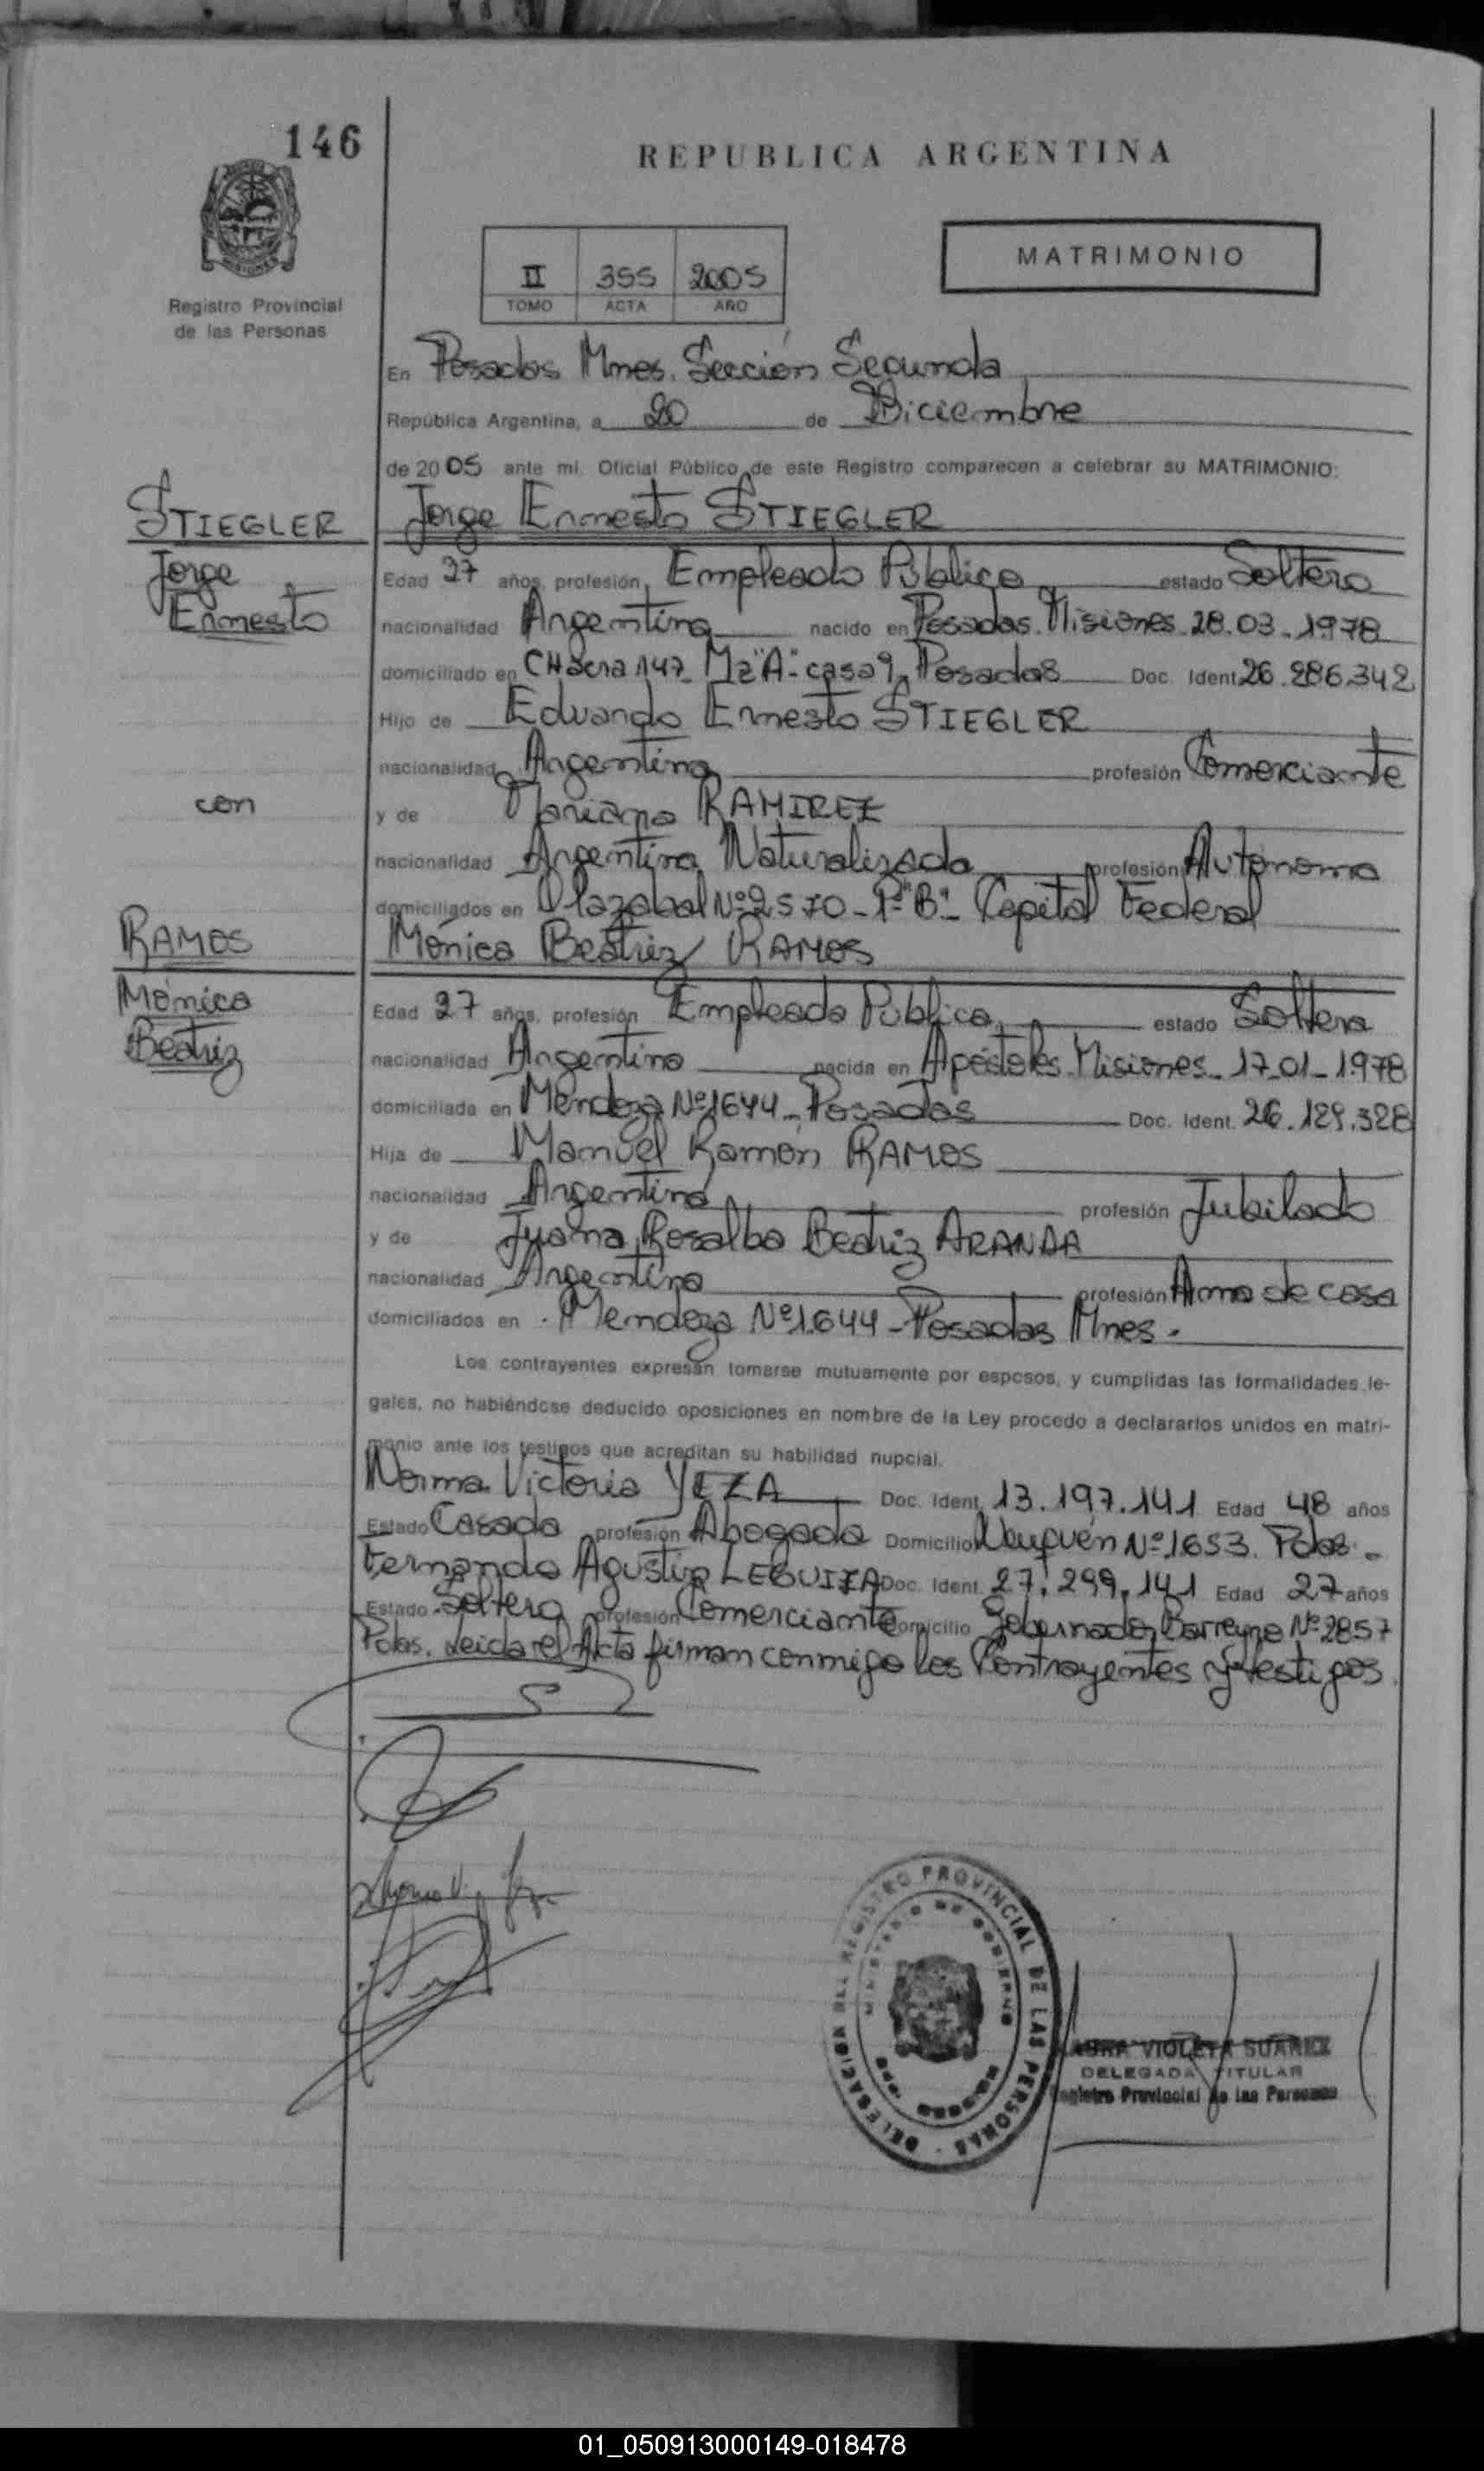 146
REPUBLICA ARGENTINA
MISIONES
Registro Provincial
de las Personas
II 355 2005
TOMO ACTA AÑO
MATRIMONIO
En Posadas Mnes. Sección Segunda
República Argentina, a 20 de Diciembre
de 2005 ante mí, Oficial Público de este Registro comparecen a celebrar su MATRIMONIO:
STIEGLER
Jorge
Ernesto
Jorge Ernesto STIEGLER
Edad 27 años, profesión Empleado Público estado Soltero
nacionalidad Argentina nacido en Posadas. Misiones. 28.03.1978
domiciliado en CHacra 147. Mz "A"- casa 9. Posadas Doc. Ident. 26.286.342
Hijo de Eduardo Ernesto STIEGLER
nacionalidad Argentina profesión Comerciante
con
y de Mariana RAMIREZ
nacionalidad Argentina Naturalizada profesión Autónoma
domiciliados en Olazabal Nº 2570 - 1º "B"- Capital Federal
RAMOS
Mónica
Beatriz
Mónica Beatriz RAMOS
Edad 27 años, profesión Empleada Pública estado Soltera
nacionalidad Argentina nacida en Apóstoles. Misiones. 17-01-1978
domiciliada en Mendoza Nº 1644 - Posadas Doc. Ident. 26.129.328
Hija de Manuel Ramón RAMOS
nacionalidad Argentina profesión Jubilado
y de Juana Rosalba Beatriz ARANDA
nacionalidad Argentina profesión Ama de casa
domiciliados en Mendoza Nº 1644 - Posadas Mnes.
Los contrayentes expresan tomarse mutuamente por esposos, y cumplidas las formalidades le-
gales, no habiéndose deducido oposiciones en nombre de la Ley procedo a declararlos unidos en matri-
monio ante los testigos que acreditan su habilidad nupcial.
Norma Victoria YEZA Doc. Ident. 13.197.141 Edad 48 años
Estado Casada profesión Abogada Domicilio Neuquén Nº 1653. Pdas.
Fernando Agustin LEGUIZA Doc. Ident. 27.299.141 Edad 27 años
Estado Soltero profesión Comerciante Domicilio Gobernador Barreyro Nº 2857
Pdas. Leida el Acta firman conmigo los Contrayentes y testigos.
DELEGACION DEL REGISTRO PROVINCIAL DE LAS PERSONAS
MINISTERIO DE GOBIERNO
LAURA VIOLETA SUAREZ
DELEGADA TITULAR
Registro Provincial de las Personas
01_050913000149-018478